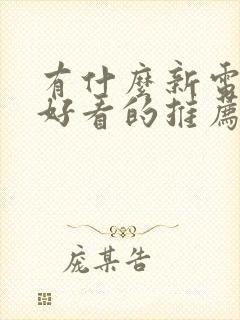 有什麼新電
好看的推薦
庞某告